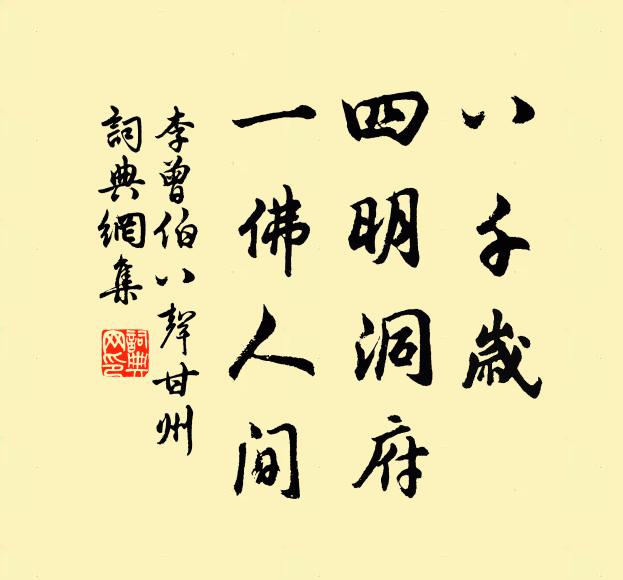 八千歲
四明洞府
一佛人间
李曾伯八聲甘州
詞典網集
詞典
网印